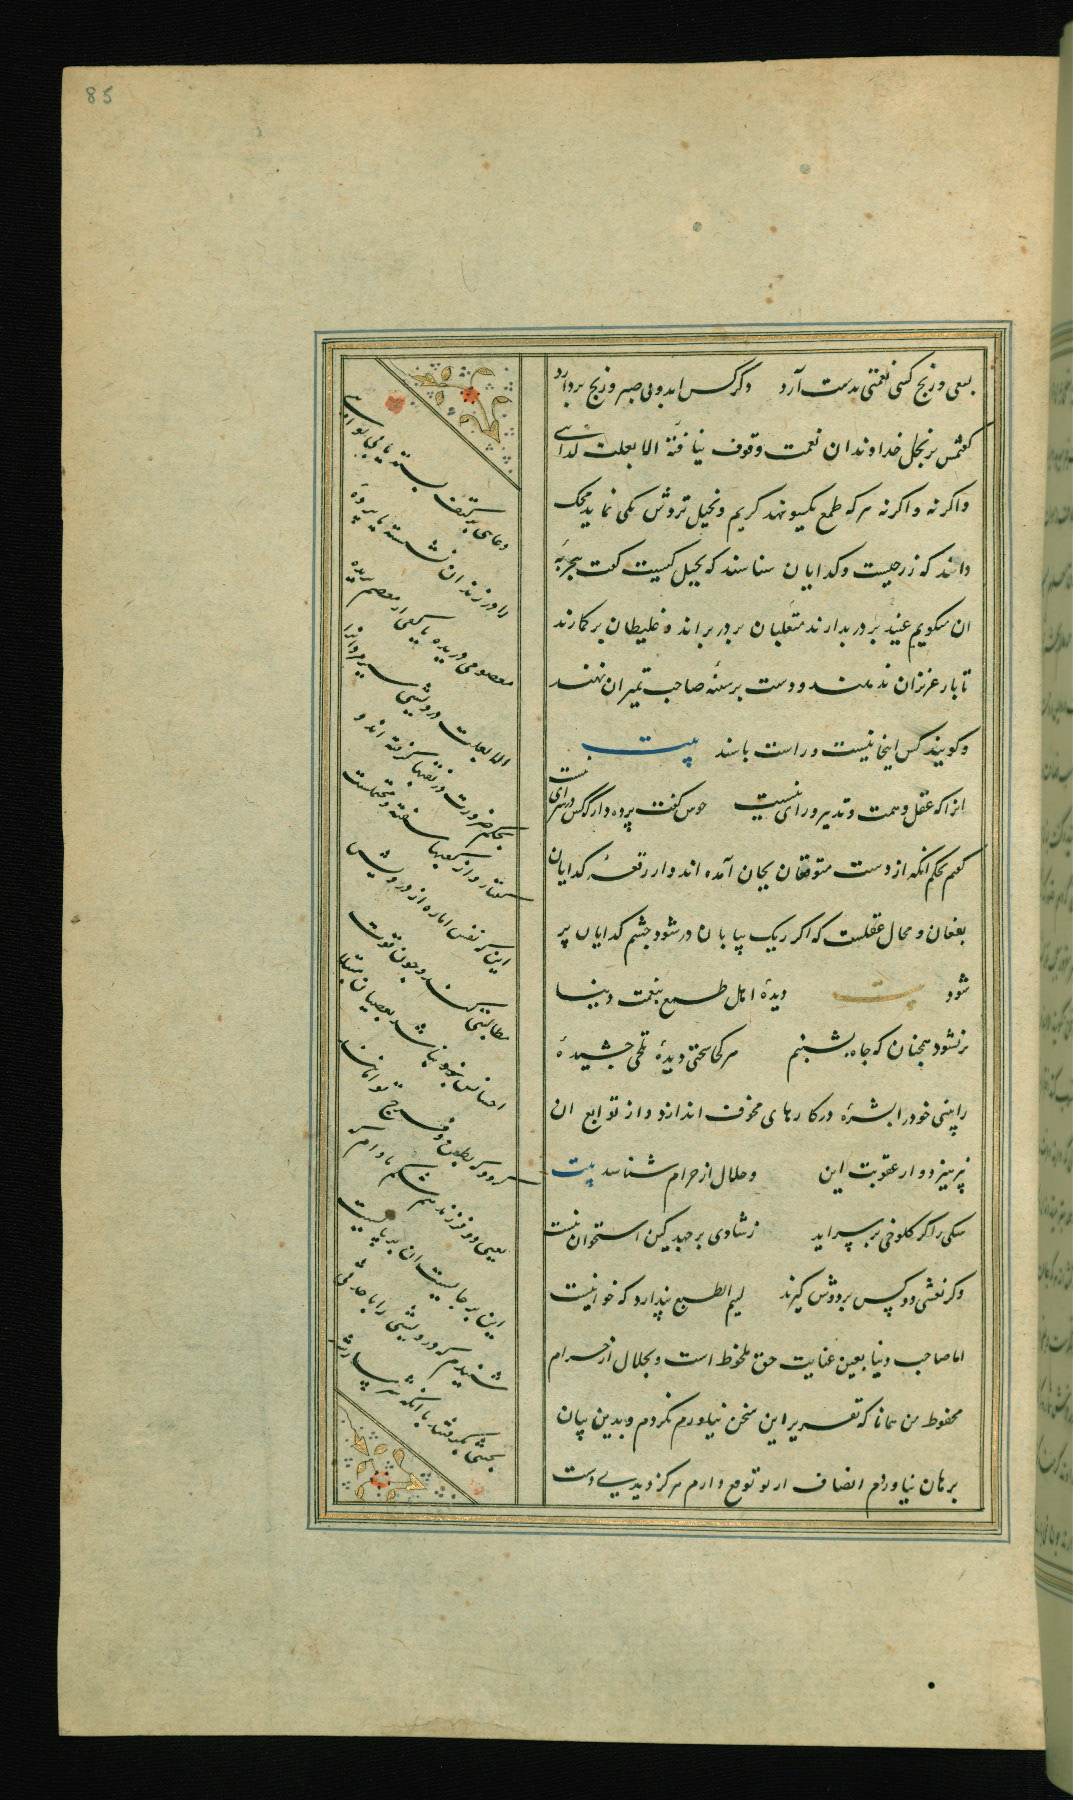 85
بسعی و رنج کسی نعمتی بدست آرد دگر کس اید و بی صبر و رنج بردارد
گفتمش بر بخل خداوندان نعمت وقوف نیافتهٔ الا بعلت گدایی
واگرنه واگرنه هر که طمع یکسو نهد کریم و بخیل تروشش یکی نماید محک
داند که زر چیست و گدایان شناسند که بخیل کیست گفت بتجربهٔ
ان میگویم عنید بر در بدارند متعلبان بر در براند و غلیظان بر کمارند
تا بار عزیزان ندهند و دست بر سینه صاحب تمیزان نهند
و گویند کس اینجا نیست و راست باشند بیت
انرا که عقل و همت و تدبیر و رای نیست خوش گفت پرده دار که کس در سرای نیست
گفتم بحکم انکه از دست متوقعان بجان آمده اند و از رقعهٔ گدایان
بفغان و محال عقلست که اگر ریک بیابان در شود چشم گدایان پر
شود بیت دیدهٔ اهل طمع بنعمت دنیا
پر نشود همچنان که چاه بشبنم هر کجا سختی دیدهٔ تلخی چشیدهٔ
را بینی خود را بشره در کارهای مخوف اندازد و از توابع ان
نپرهیزد و از عقوبت این و حلال از حرام نشناسد بیت
سکی را گر کلوخی بر سر آید ز شادی بر جهد کین استخوان نیست
و گر نعشی دو کس بر دوش گیرند لئیم الطبع پندارد که خوانیست
اما صاحب دنیا بعین عنایت حق ملحوظ است و بحلال از حرام
محفوظ من همانا که تقریر این سخن نیاوردم نکردم و بدین بیان
برهان نیاوردم انصاف از تو توقع دارم هرگز دیدی دست
دعایی بر کتف بسته یا بی نوایی
را در زندان نشسته یا پردهٔ
معصومی دریده یا کفی از معصم بریده
الا بعلت درویشی شیر مردانرا
بحکم ضرورت در نقبها گرفته اند و
کعبها سفته و محتملست
این که نفس اماره از درویش
مطالبتی کند و چون قوت
احصانش نباشد بعصیان مبتلا
کردد که بطن و فرج توامانند
یعنی دو فرزند یک شکم مادام که
این بر جاییست ان بر پاییست
شنیدم که درویشی را با حدثی
بخبثی بگرفتند با انکه شرمساری